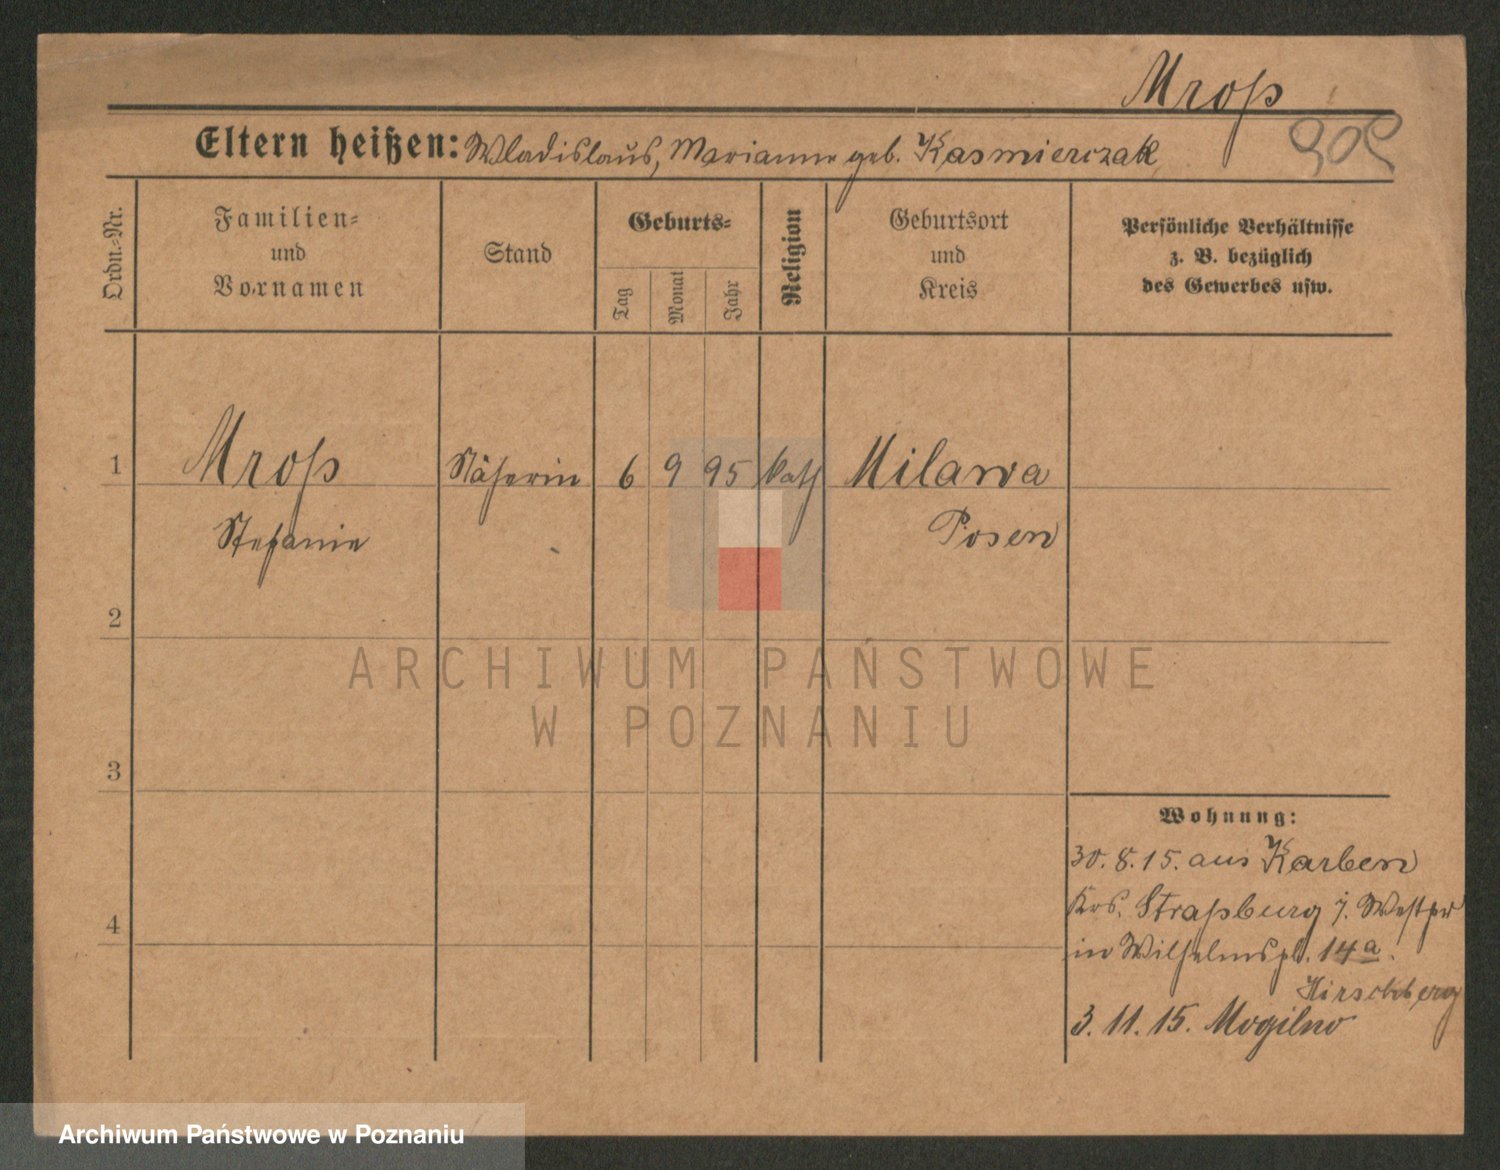 Mroß
Eltern heißen: Wladislaus, Marianne geb. Kasmierczak
Ordn.=Nr.
Familien=
und
Vornamen
Stand
Geburts=
Tag
Monat
Jahr
Religion
Geburtsort
und
Kreis
Persönliche Verhältnisse
z. B. bezüglich
des Gewerbes usw.
1 Mroß Näherin 6 9 95 kath Milawa
Stefanie Posen
2
ARCHIWUM PAŃSTWOWE
W POZNANIU
3
Wohnung:
30. 8. 15. aus Karben
Krs. Straßburg i. Westpr
4
in Wilhelmspl. 14a.
Hirschberg
3. 11. 15. Mogilno
Archiwum Państwowe w Poznaniu